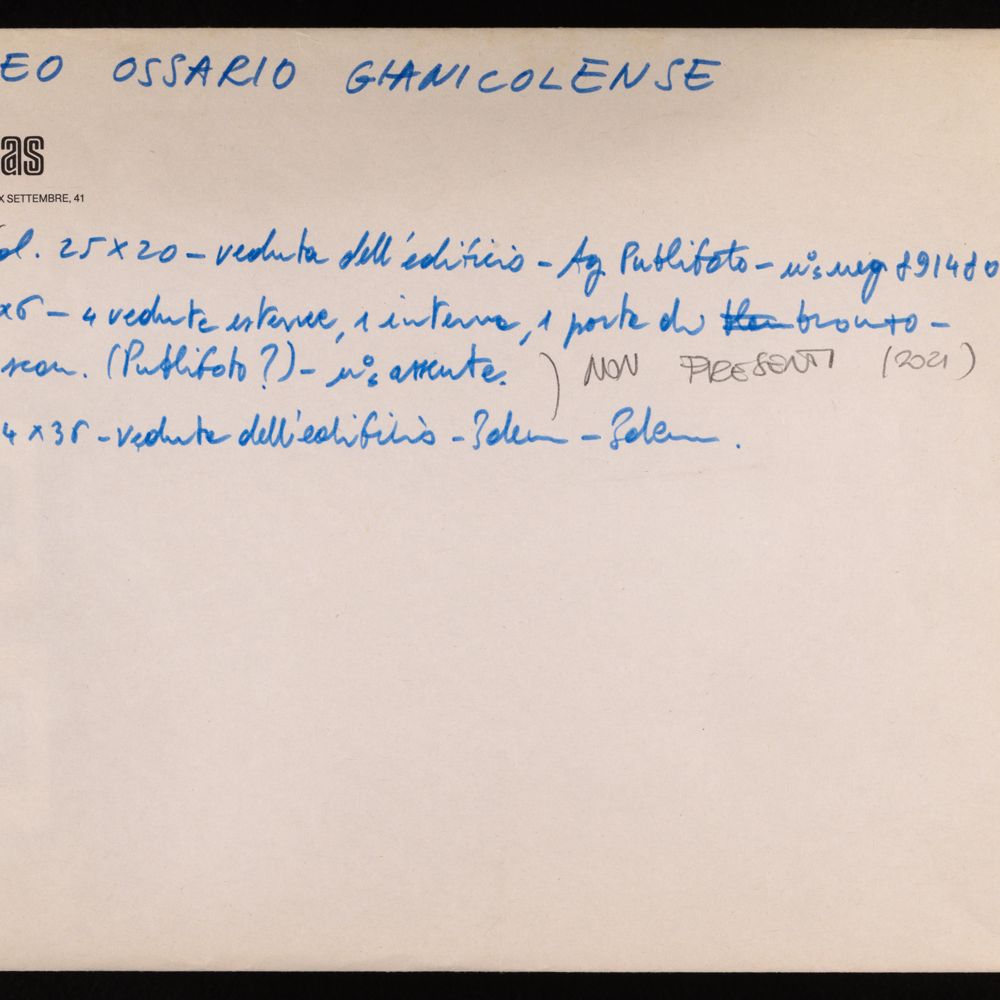 EO OSSARIO GIANICOLENSE
as
X SETTEMBRE, 41
ol. 25 x 20 - veduta dell'edificio - Ag Publifoto - n° neg 891480
x6 - 4 vedute esterne, 1 interna, 1 porta di bronzo -
(Publifoto?) - n° assente.
) NON PRESENTI (2021)
4 x 36 - veduta dell'edificio - Idem - Idem.